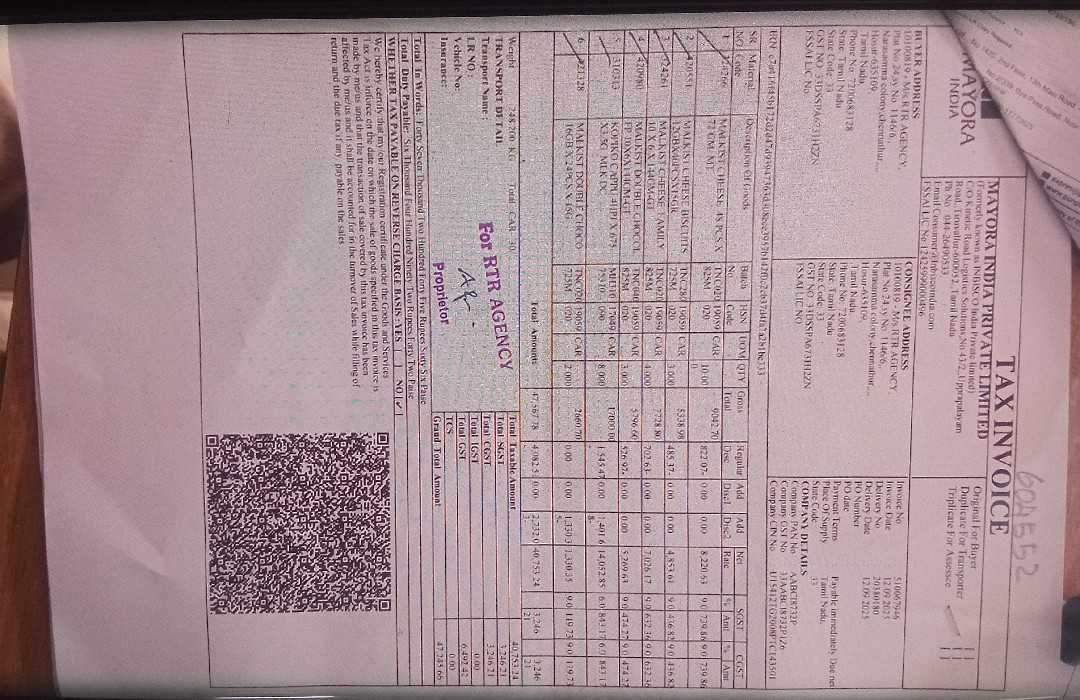 TAX INVOICE
604552
MAYORA
INDIA
MAYORA INDIA PRIVATE LIMITED
(Formerly known as INBISCO India Private limited)
C/O Kinetic Road Logistics Solutions,No 43/2, Upparapalayam
Road, Tiruvallur-600052, Tamil Nadu
Ph No. 044-26490533
Email Consumer@inbisconindia.com
FSSAI LIC No 12425999000496
Original For Buyer
Duplicate For Transporter
Triplicate For Assessee
BUYER ADDRESS
10100819 - M/s.RTR AGENCY,
Plat No 24,sy No. 1146/6,
Narasamma colony,chennathur,...
Hosur-635109
Tamil Nadu
Phone No: 7200683128
State: Tamil Nadu
State Code 33
GST NO. 33DSSPA6731H2ZN
FSSAI LIC No
CONSIGNEE ADDRESS
10100819 - M/s.RTR AGENCY,
Plat No 24,sy No. 1146/6,
Narasamma colony,chennathur,...
Hosur-635109
Tamil Nadu,
Phone No: 7200683128
State: Tamil Nadu
State Code: 33
GST NO. 33DSSPA6731H2ZN
FSSAI LIC NO
Invoice No 510067946
Invoice Date 12.09.2025
Delivery No 20380180
Delivery Date 12.09.2025
PO Number
PO date
Payment Terms Payable immediately Due net
Place Of Supply Tamil Nadu,
State Code 33
COMPANY DETAILS
Company PAN No AABCI8732P
Company GST No 33AABCI8732P1Z6
Company CIN No
IRN
SR NO Material Code Description Of Goods Batch No. HSN Code UOM QTY Gross Total Regular Disc Add Disc1 Add Disc2 Net Rate SGST % Amt CGST % Amt
MALKIST CHEESE 48 PCS X 72 GM-MT 825M 19059020 CAR 10.00 9042.70 822.07- 0.00 0.00 8,220.63 9.0 739.86 9.0 739.86
2 420551 MALKIST CHEESE BISCUITS 725M 19059020 CAR 3.000 5338.98 485.37- 0.00 0.00 4,853.61 9.0 436.82 9.0 436.82
3 MALKIST CHEESE FAMILY 825M 19059020 CAR 4.000 7728.80 702.63- 0.00 0.00 7,026.17 9.0 632.36 9.0 632.36
4 420990 MALKIST DOUBLE CHOCO 825M 19059020 CAR 3.000 5796.60 526.97- 0.00 0.00 5,269.63 9.0 474.27 9.0 474.27
5 310313 CAR 8.000 17000.00 0.00 14,052.85 6.0 843.17 6.0 843.17
6 421328 MALKIST DOUBLE CHOCO 16GB X 24PCS X 16G 725M 19059020 CAR 2.000 2660.70 0.00 0.00 1,330.35 9.0 119.73 9.0 119.73
Total Amounts 47,567.78 0.00 40,753.24 3,246.21 3,246.21
Weight 248.200 KG Total CAR 30
TRANSPORT DETAIL
Transport Name :
LR NO :
Vehicle No:
Insurance:
For RTR AGENCY
Proprietor
Total Taxable Amount 40,753.24
Total SGST 3,246.21
Total CGST 3,246.21
Total IGST 0.00
Total GST 6,492.42
TCS 0.00
Grand Total Amount 47,245.66
Total In Words : Forty Seven Thousand Two Hundred Forty Five Rupees Sixty Six Paise
Total Duty Payable: Six Thousand Four Hundred Ninety Two Rupees Forty Two Paise
WHETHER TAX PAYABLE ON REVERSE CHARGE BASIS : YES [ ] NO [✓]
We hereby certify that my/our Registration certificate under the Goods and Services
Tax Act is inforce on the date on which the sale of goods specified in this tax invoice is
made by me/us and that the transaction of sale covered by this tax invoice has been
affected by me/us and it shall be accounted for in the turnover of Sales while filling of
return and the due tax if any, payable on the sales